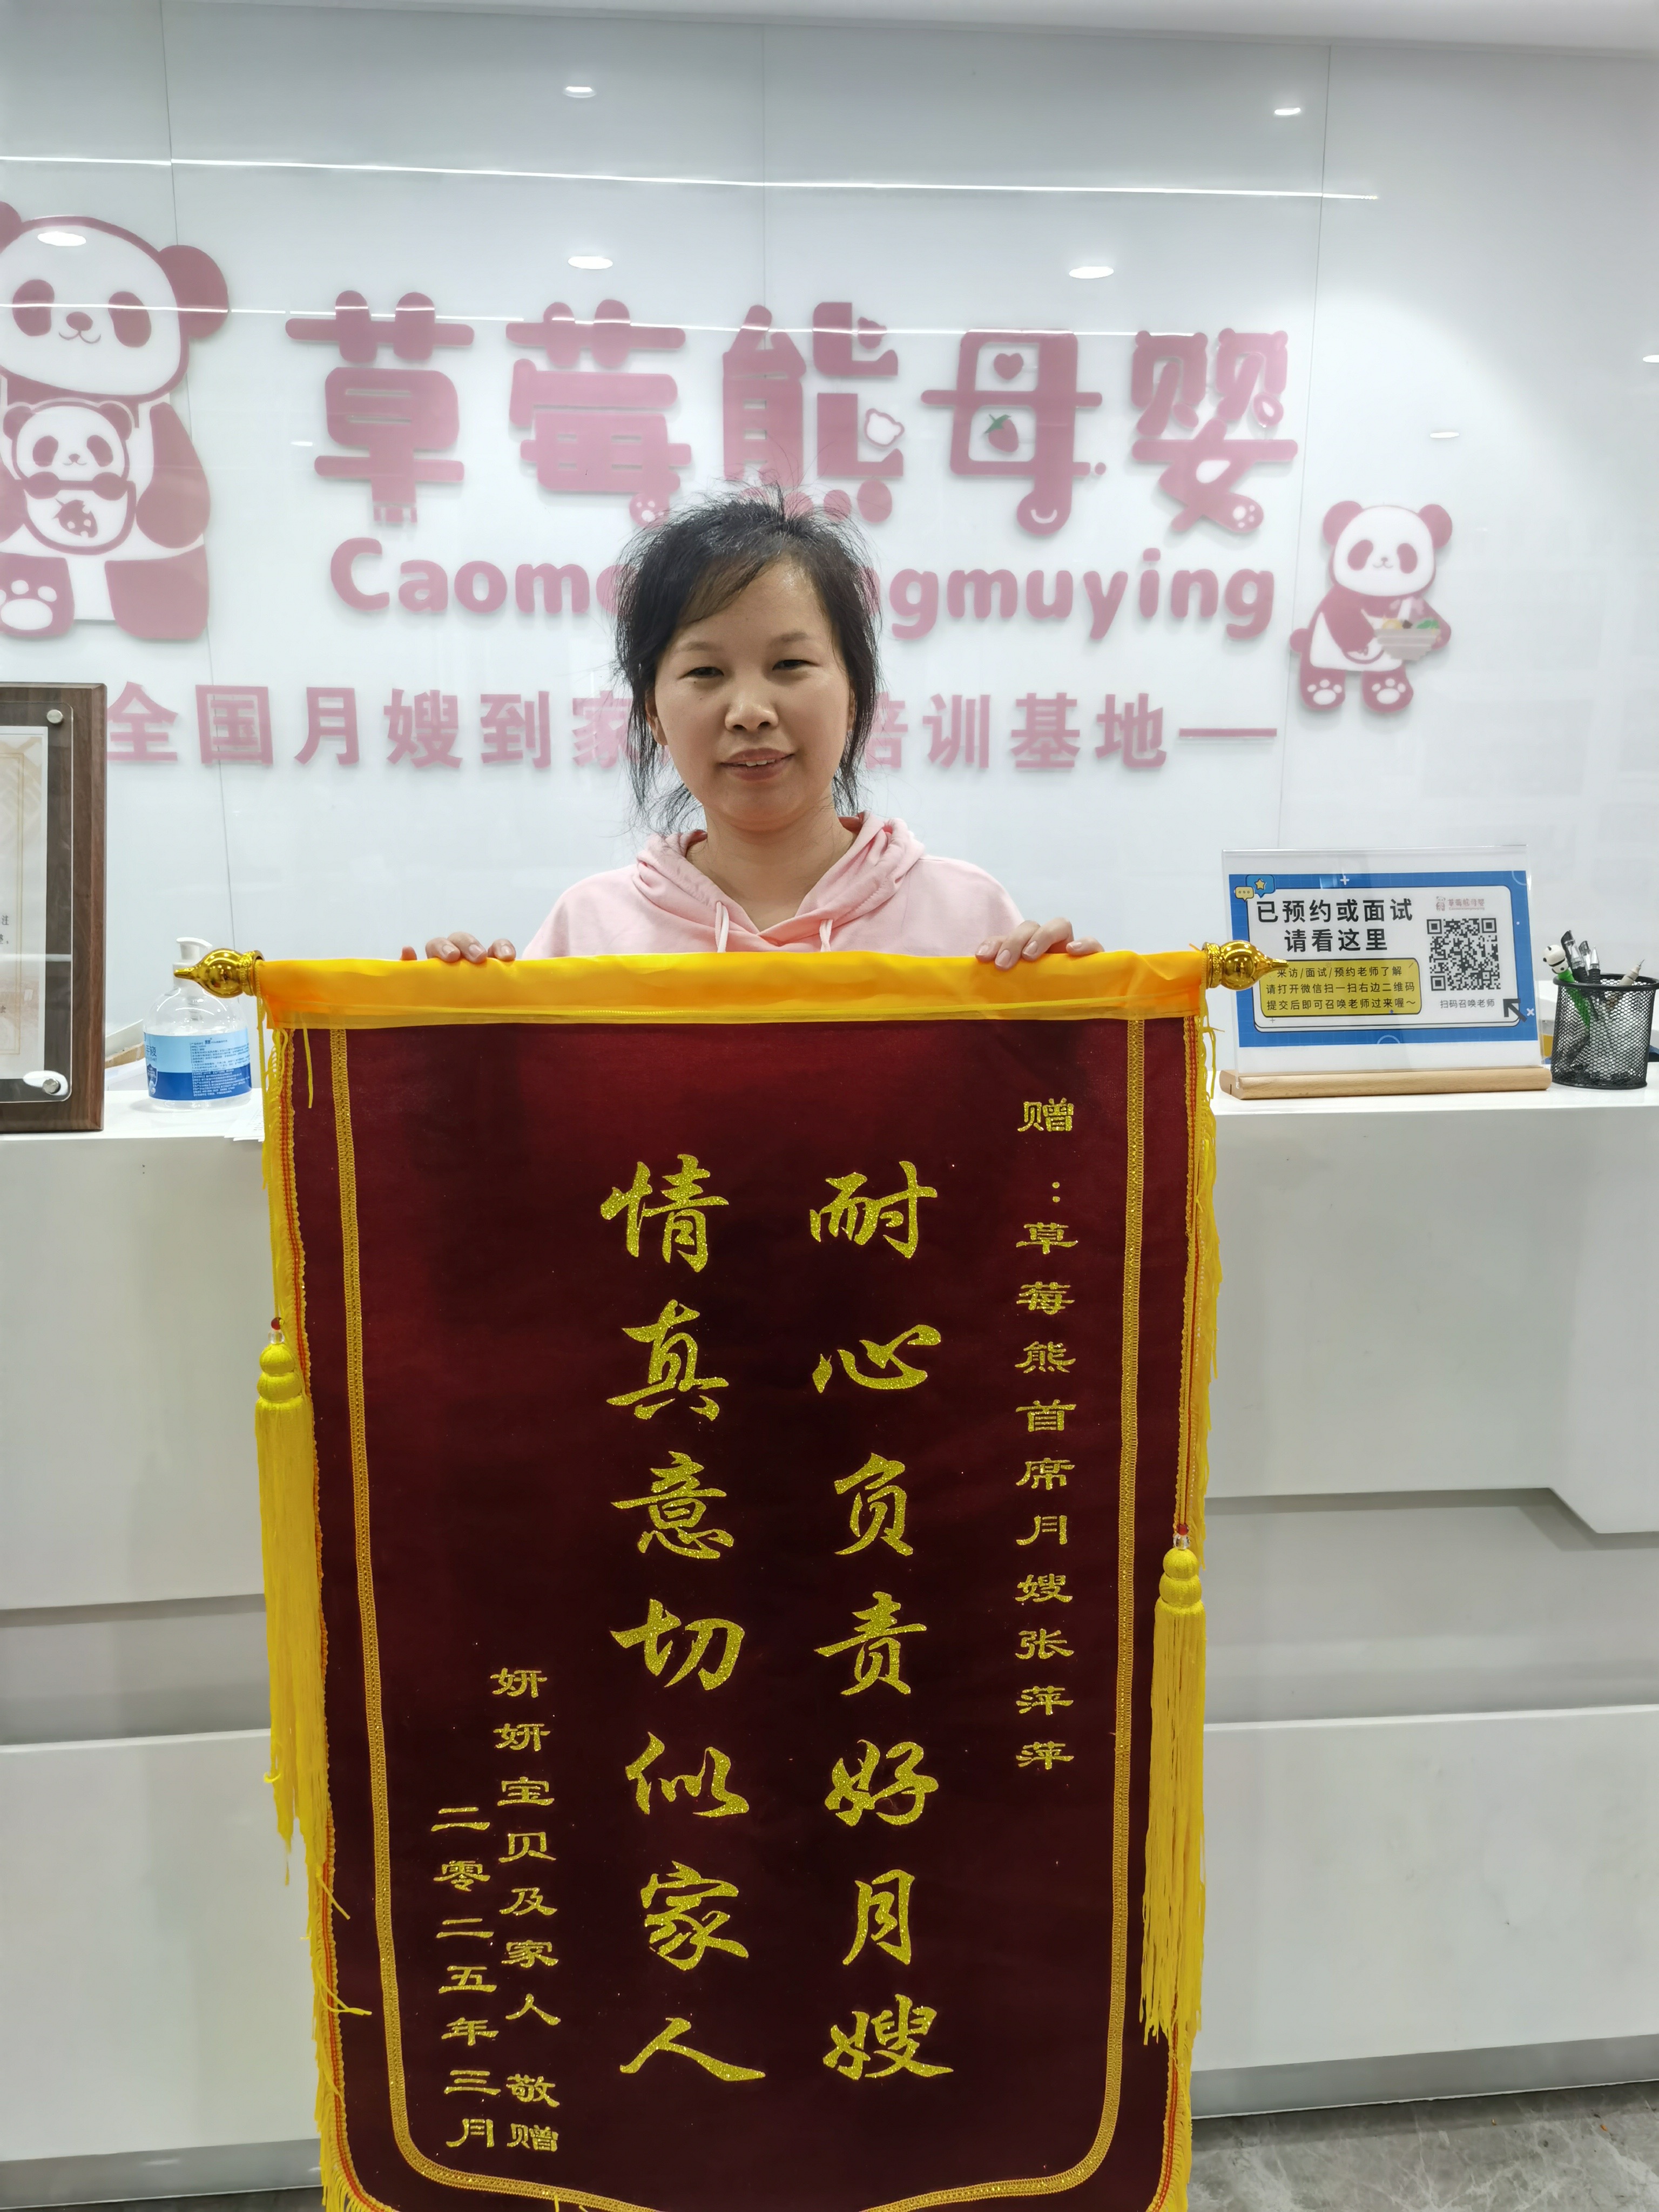 草莓熊母婴
Caom
gmuying
全国月嫂到家
培训基地
已预约或面试
请看这里
来访/面试/预约老师了解
请打开微信扫一扫右边二维码
提交后即可召唤老师过来喔~
草莓熊母婴
扫码召唤老师
赠：草莓熊首席月嫂张萍萍
耐心负责好月嫂
情真意切似家人
妍妍宝贝及家人 敬赠
二零二五年三月